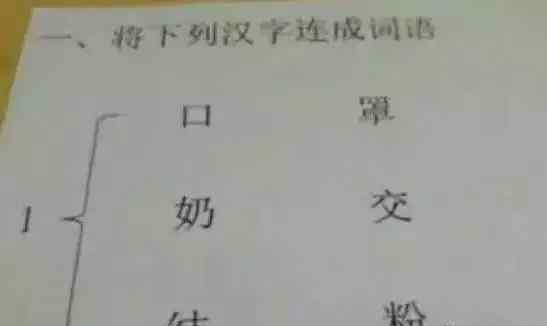 一、将下列汉字连成词语
口 罩
1 奶 交
粉